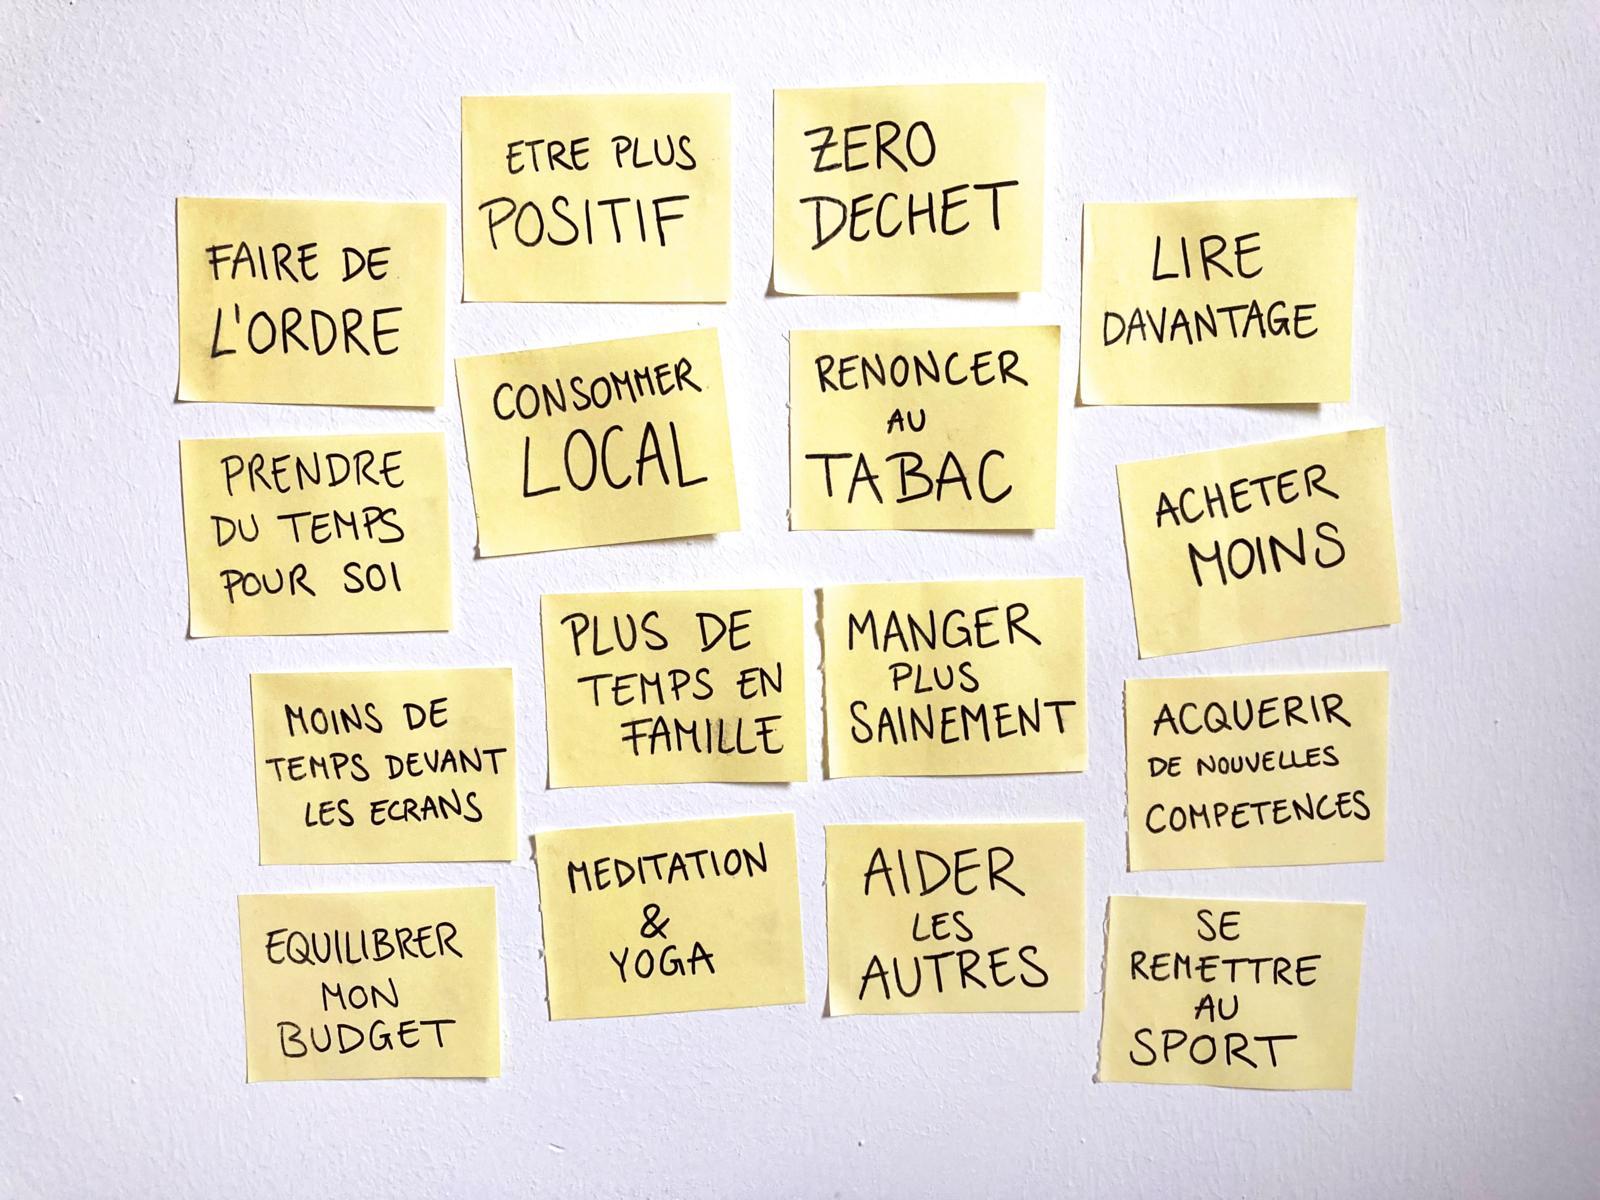 ETRE PLUS
POSITIF
ZERO
DECHET
FAIRE DE
L'ORDRE
LIRE
DAVANTAGE
CONSOMMER
LOCAL
RENONCER
AU
TABAC
PRENDRE
DU TEMPS
POUR SOI
ACHETER
MOINS
PLUS DE
TEMPS EN
FAMILLE
MANGER
PLUS
SAINEMENT
MOINS DE
TEMPS DEVANT
LES ECRANS
ACQUERIR
DE NOUVELLES
COMPETENCES
MEDITATION
&
YOGA
AIDER
LES
AUTRES
EQUILIBRER
MON
BUDGET
SE
REMETTRE
AU
SPORT